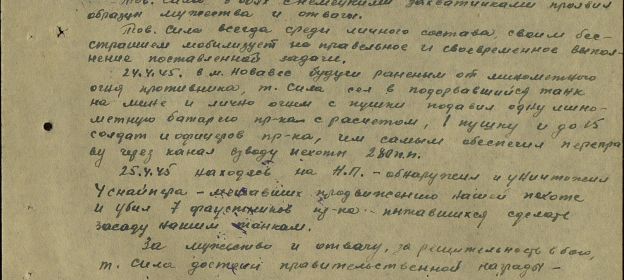 Тов. Сила в боях с немецкими захватчиками проявил
образцы мужества и отваги.
Тов. Сила всегда среди личного состава, своим бес-
страшием мобилизует на правельное и своевременное выпол-
нение поставленной задачи.
24.4.45. в м. Новавес будучи раненым от минометного
огня противника, т. Сила сел в подорвавшийся танк
на мине и лично огнем с пушки подавил одну мино-
метную батарею пр-ка с расчетом, 1 пушку и до 15
солдат и офицеров пр-ка, чем самым обеспечил перепра
ву через канал взводу пехоты 280 п.п.
25.4.45 находясь на Н.П. - обнаружил и уничтожил
4 снайпера - мешавших продвижению нашей пехоте
и убил 7 фаустников пр-ка - пытавшихся сделать
засаду нашим танкам.
За мужество и отвагу, за решительность в бою,
т. Сила достоин правительственной награды -